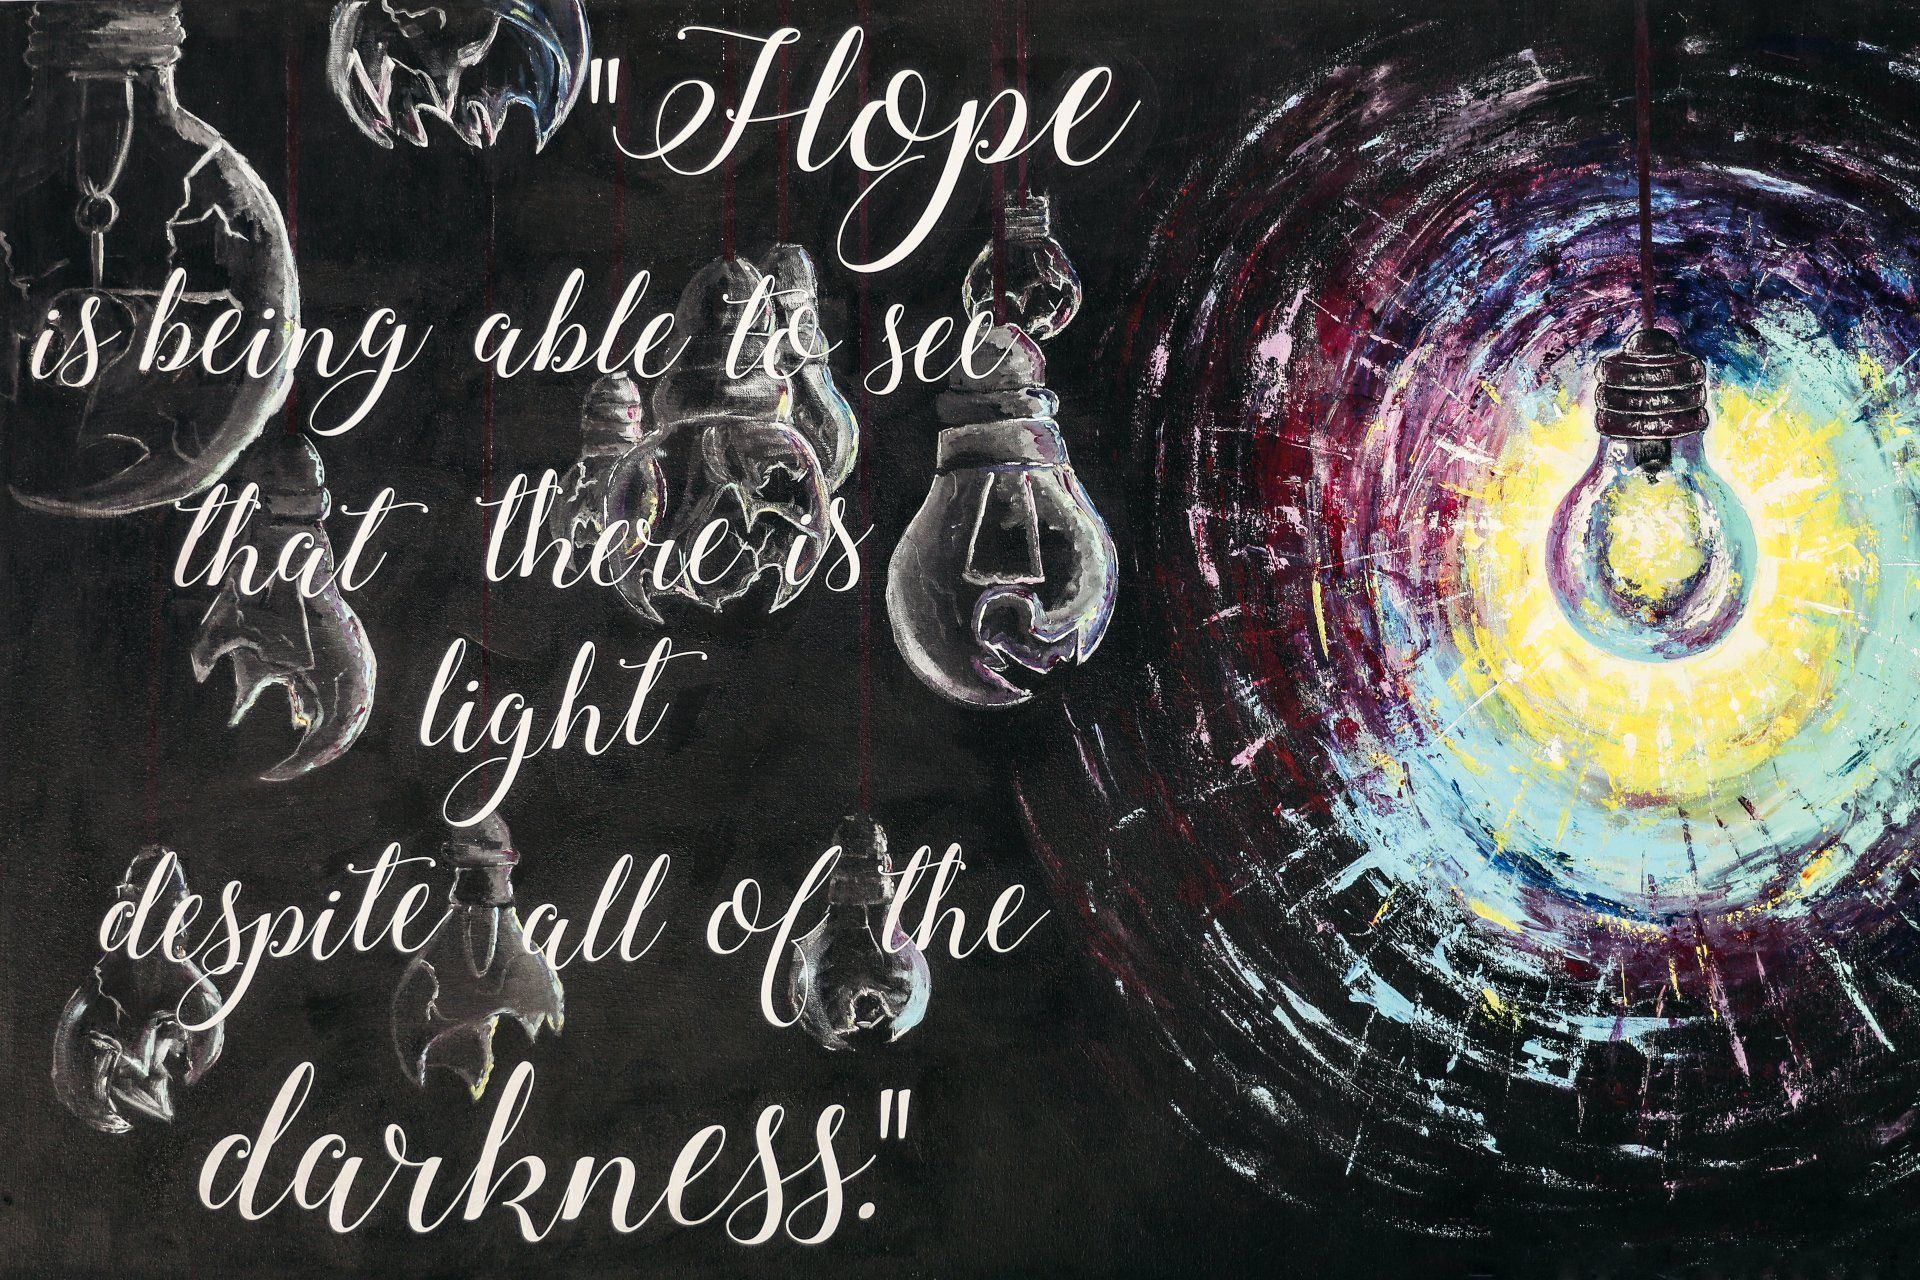 "Hope
is being able to see
that there is
light
despite all of the
darkness."